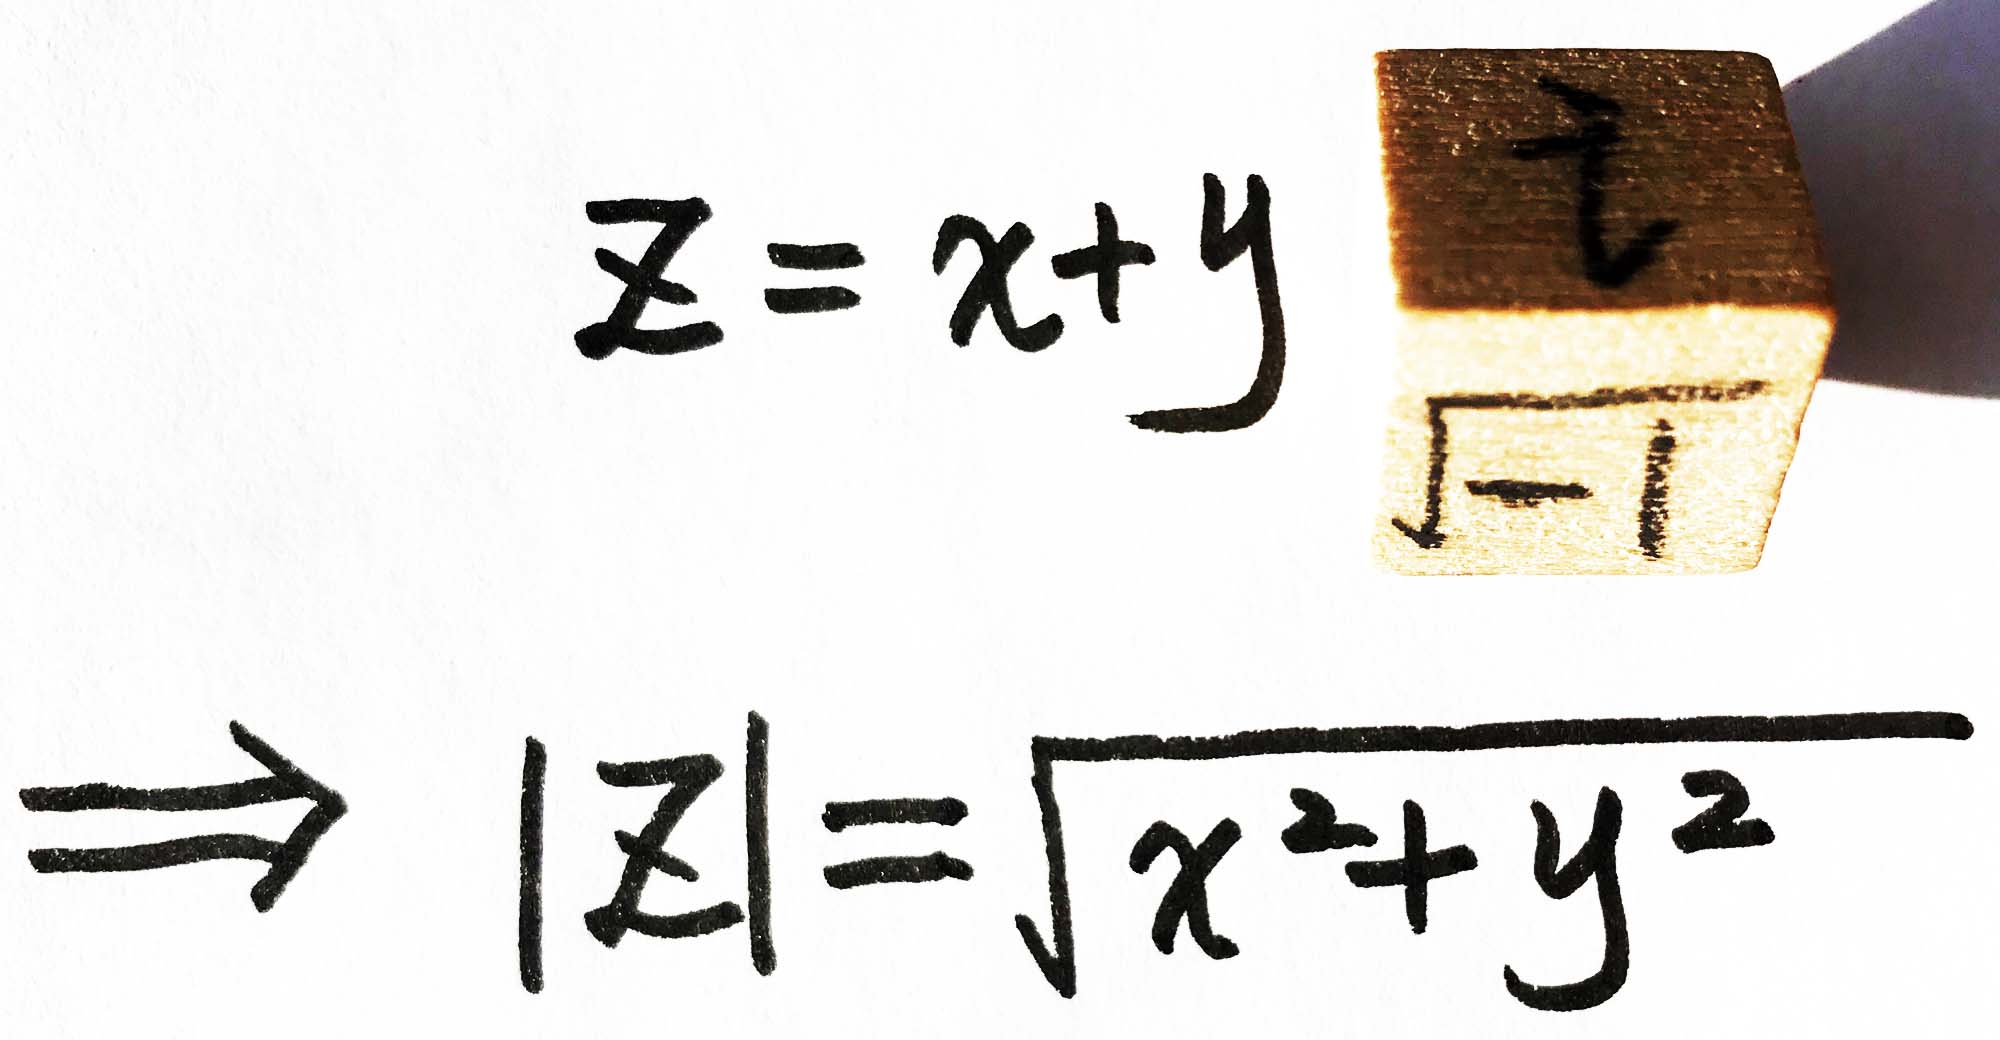 z = x + y i
√-1
⇒ |z| = √x² + y²